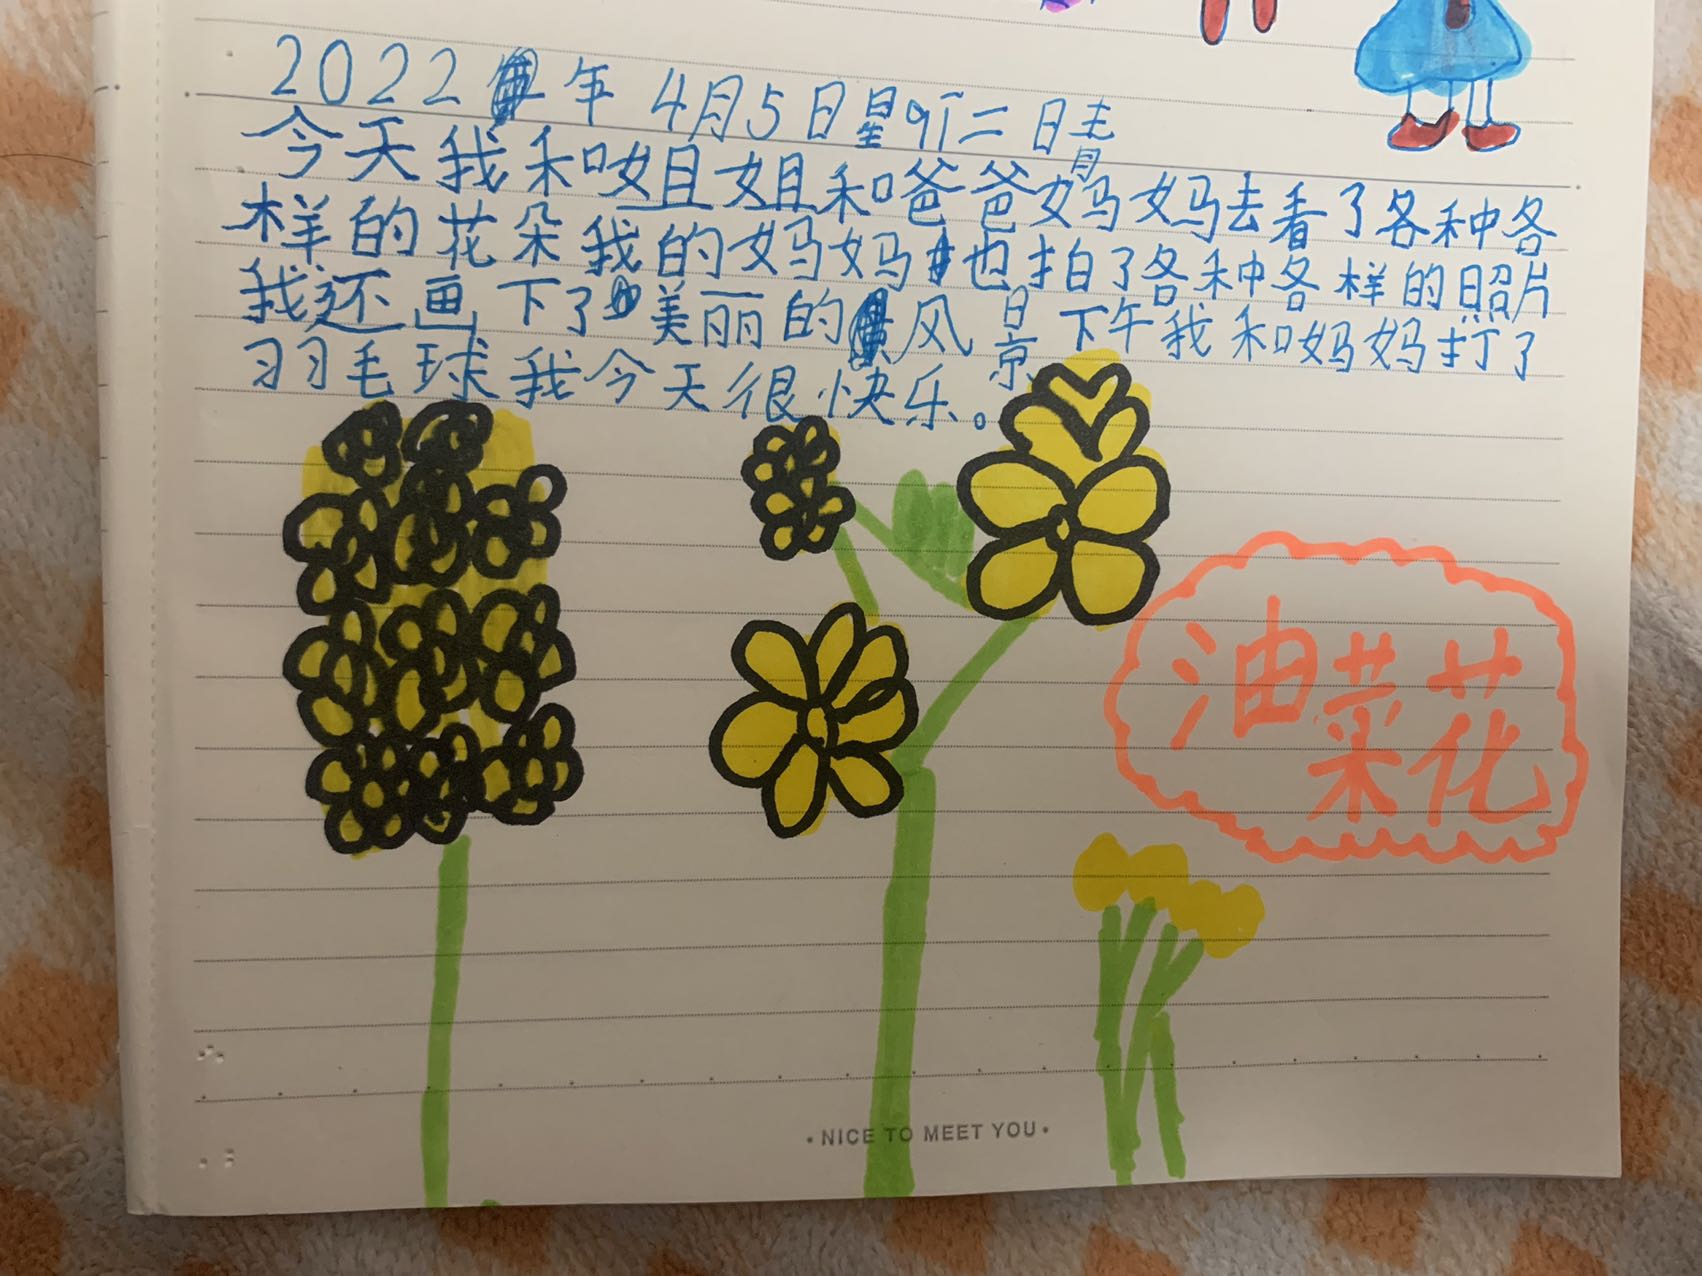 2022年4月5日星期二日晴
今天我和姐姐和爸爸妈妈去看了各种各
样的花朵我的妈妈也拍了各种各样的照片
我还画下了美丽的风景下午我和妈妈打了
羽毛球我今天很快乐。
油菜花
•NICE TO MEET YOU•